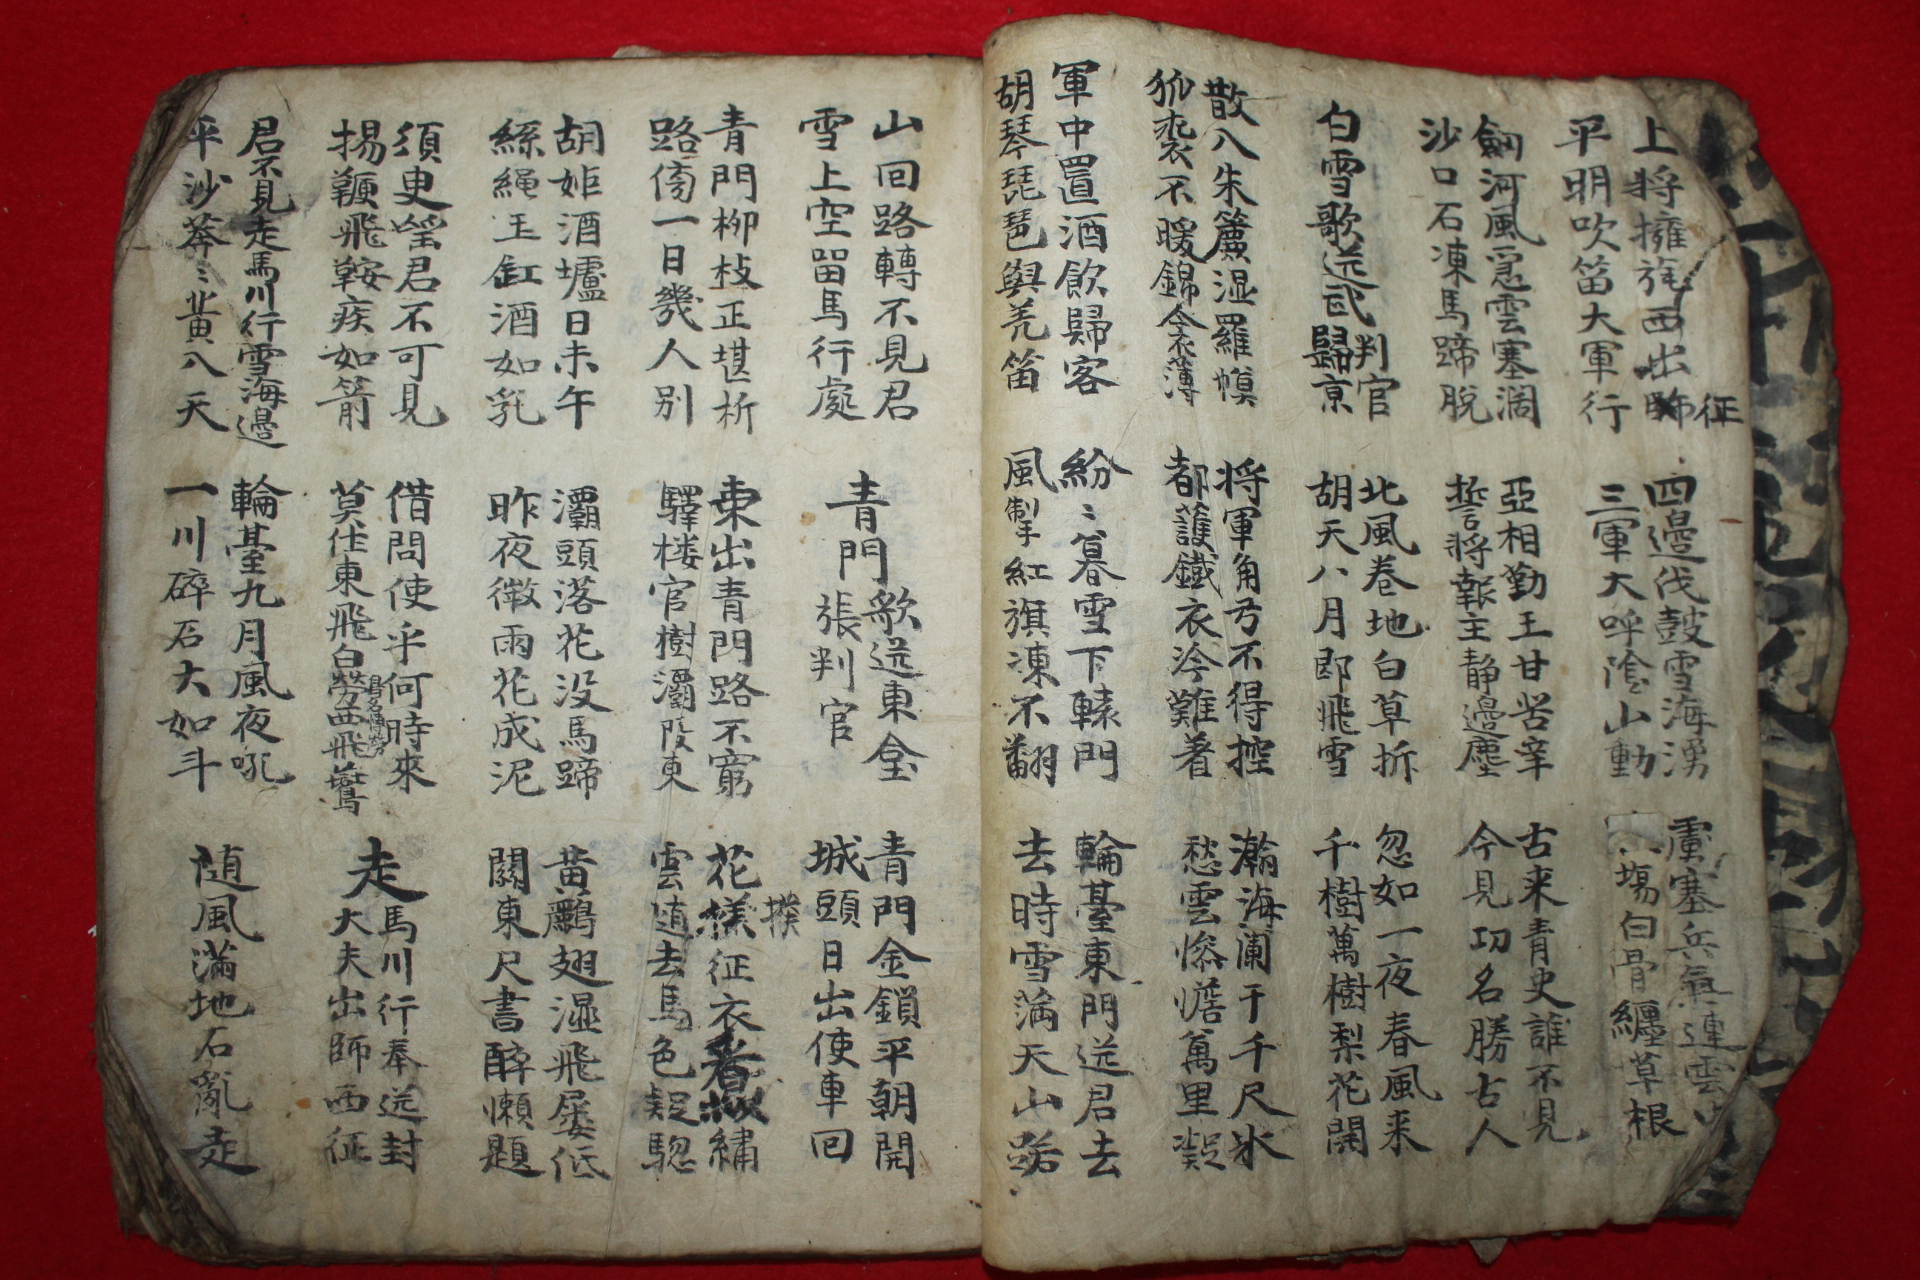 上將擁旄西出征
平明吹笛大軍行
四邊伐鼓雪海湧
三軍大呼陰山動
虜塞兵氣連雲
塲白骨纏草根
劒河風急雲塞濶
沙口石凍馬蹄脫
亞相勤王甘苦辛
誓將報主靜邊塵
古来青史誰不見
今見功名勝古人
白雪歌送武判官歸京
北風卷地白草折
胡天八月即飛雪
忽如一夜春風来
千樹萬樹梨花開
散入朱簾湿羅幙
狐裘不暖錦衾薄
将軍角弓不得控
都護鐵衣冷難着
瀚海闌干千尺氷
愁雲慘憺萬里凝
軍中置酒飮歸客
胡琴琵琶與羌笛
紛〻暮雪下轅門
風掣紅旗凍不翻
輪臺東門送君去
去時雪滿天山路
山回路轉不見君
雪上空留馬行處
青門歌送東臺張判官
青門金鎖平朝開
城頭日出使車回
青門柳枝正堪折
路傍一日幾人別
東出青門路不窮
驛楼官樹灞陵東
花撲征衣看似繡
雲随去馬色疑驄
胡姬酒壚日未午
絲繩玉缸酒如乳
灞頭落花沒馬蹄
昨夜微雨花成泥
黃鸝翅湿飛屡低
關東尺書醉懶題
須臾望君不可見
揚鞭飛鞍疾如箭
借問使乎何時來
莫作東飛白勞西飛鷰
走馬川行奉送封大夫出師西征
君不見走馬川行雪海邊
平沙莽〻黃入天
輪臺九月風夜吼
一川碎石大如斗
随風滿地石亂走